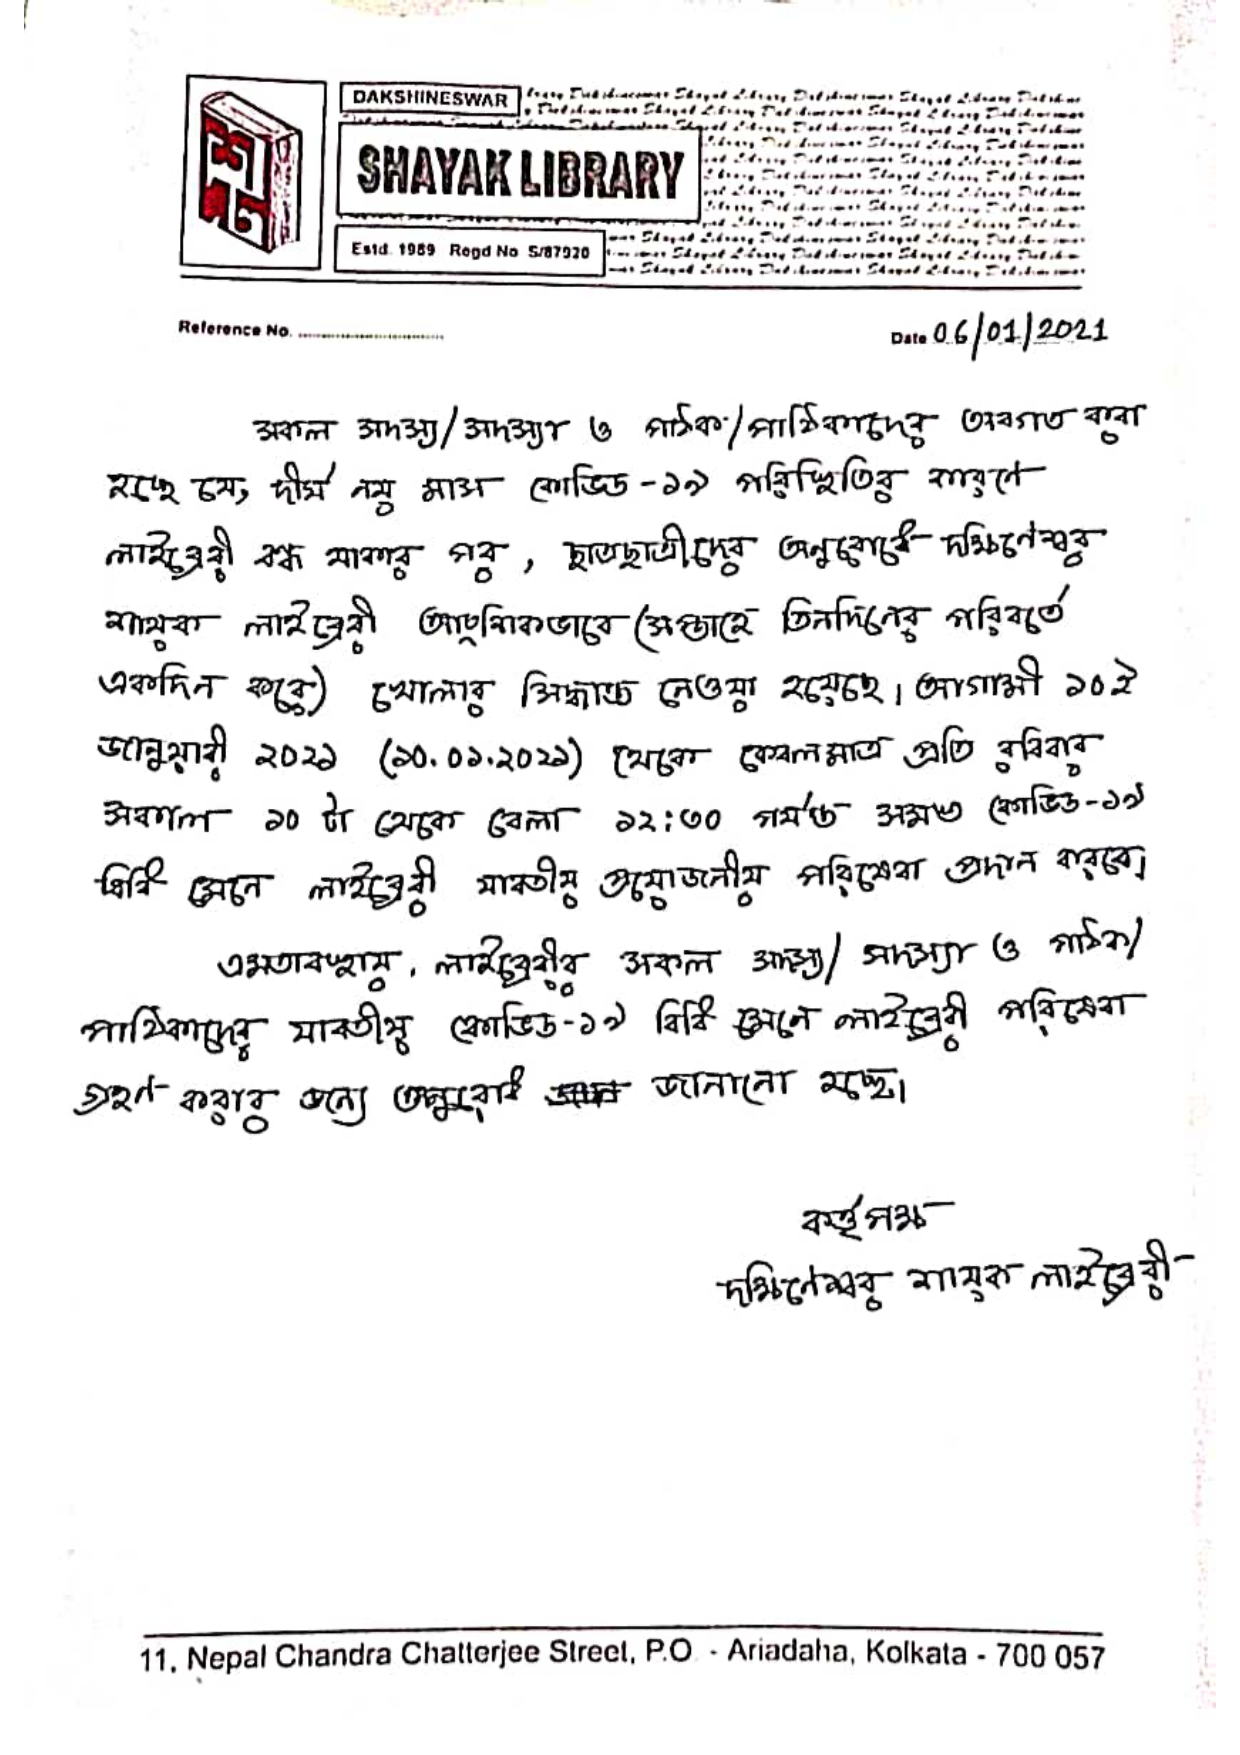 DAKSHINESWAR
SHAYAK LIBRARY
Estd. 1989 Regd No S/87920
Reference No. ........................
Date 06/01/2021
সকল সদস্য/সদস্যা ও পাঠক/পাঠিকাদের অবগত করা
হচ্ছে যে, দীর্ঘ নয় মাস কোভিড-১৯ পরিস্থিতির কারণে
লাইব্রেরী বন্ধ থাকার পর, ছাত্রছাত্রীদের অনুরোধে দক্ষিণেশ্বর
শায়ক লাইব্রেরী আংশিকভাবে (সপ্তাহে তিনদিনের পরিবর্তে
একদিন করে) খোলার সিদ্ধান্ত নেওয়া হয়েছে। আগামী ১০ই
জানুয়ারী ২০২১ (১০.০১.২০২১) থেকে কেবলমাত্র প্রতি রবিবার
সকাল ১০ টা থেকে বেলা ১২:৩০ পর্যন্ত সমস্ত কোভিড-১৯
বিধি মেনে লাইব্রেরী যাবতীয় প্রয়োজনীয় পরিষেবা প্রদান করবে।
এমতাবস্থায়, লাইব্রেরীর সকল সদস্য/ সদস্যা ও পাঠক/
পাঠিকাদের যাবতীয় কোভিড-১৯ বিধি মেনে লাইব্রেরী পরিষেবা
গ্রহণ করার জন্যে অনুরোধ জানানো হচ্ছে।
কর্তৃপক্ষ
দক্ষিণেশ্বর শায়ক লাইব্রেরী
11, Nepal Chandra Chatterjee Street, P.O. - Ariadaha, Kolkata - 700 057